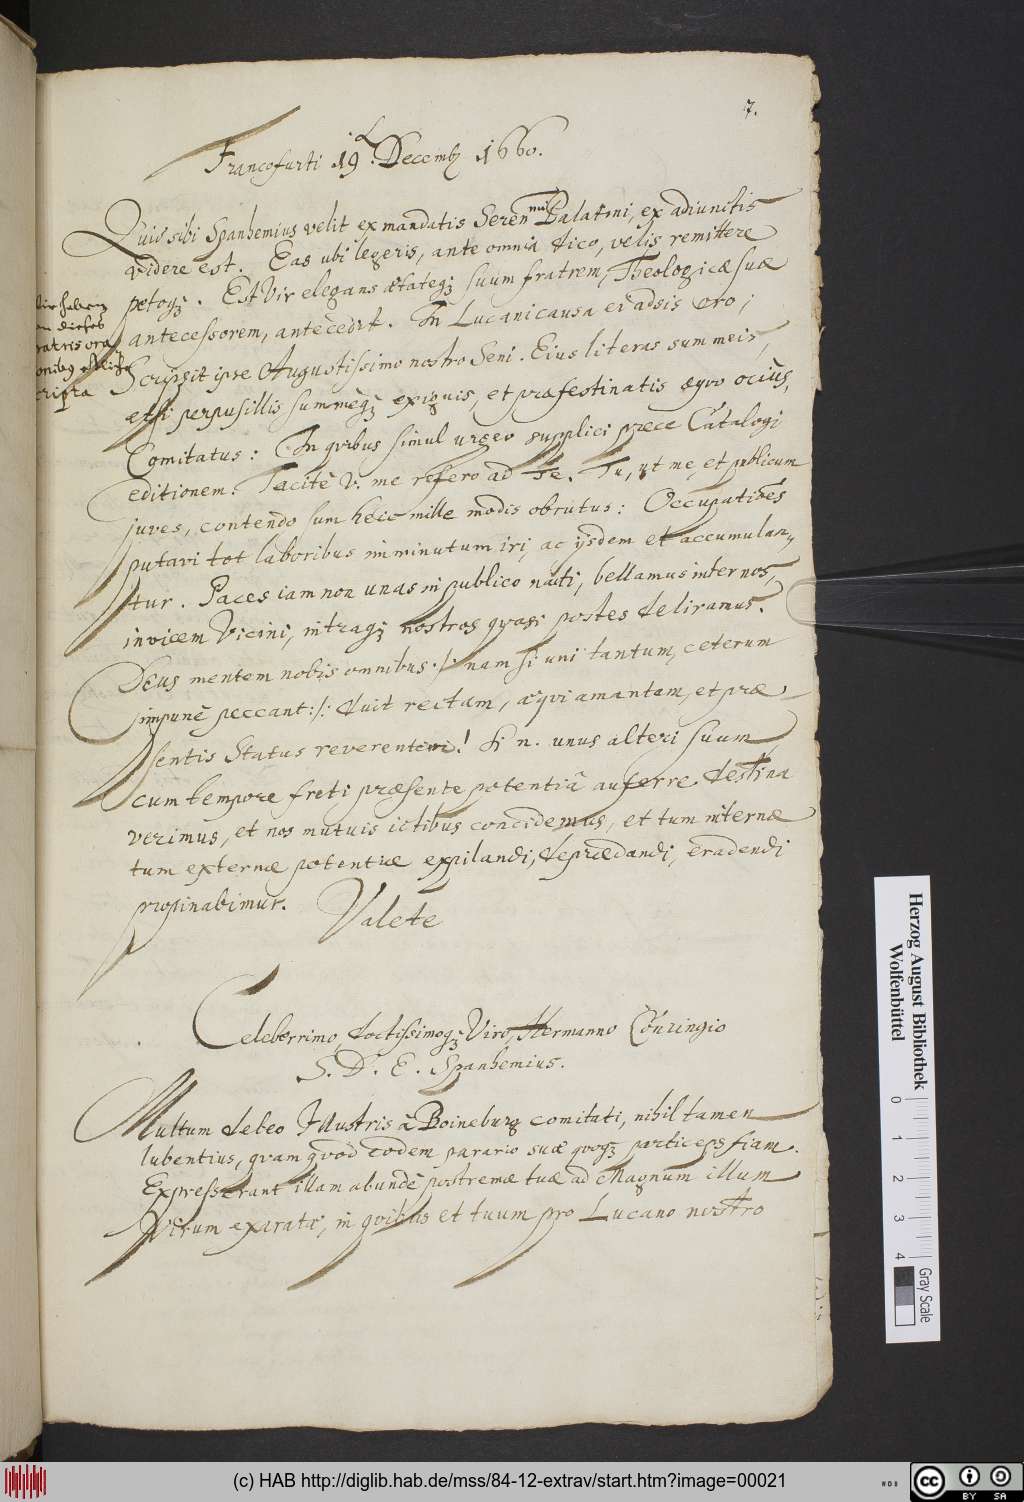 7.
Francofurti 19. Decemb 1660.
Quid sibi Spanhemius velit ex mandatis Seren mi Palatini, ex adiunctis
videre est. Eas ubi legeris, ante omnia dico, velis remittere
petoq;. Est Vir elegans ætateq; suum fratrem, Theologicæ suæ
antecessorem, antecedit. In Lucani causa ei adsis oro;
Scripsit ipse Augustissimo nostro Seni. Eius literas sum meis,
etsi perpusillis summeq; exiguis, et præfestinatis æquo ociùs,
Comitatus: In quibus simul urgeo supplici prece Catalogi
editionem. Tacitè v. me refero ad Te. Tu, ut me, et publicum
juves, contendo sum heic mille modis obrutus: Occupationes
putavi tot laboribus imminutum iri, ac ijsdem et accumulan,,
tur. Paces iam non unas in publico nacti, bellamus inter nos,
invicem Vicini, intraq; nostros quasi postes deliramus.
Deus mentem nobis omnibus :/: nam si uni tantum, ceterum
impunè peccant :/: duit rectam, æqui amantem, et præ
sentis Status reverentem! Si n. unus alteri suum
cum tempore freti præsente potentiâ auferre destina
verimus, et nos mutuis ictibus concidemus, et tum internæ
tum externæ potentiæ expilandi, deprædandi, eradendi
propinabimur. Valete
fratris ora
Celeberrimo, doctissimoq; Viro, Hermanno Conringio
S. D. E. Spanhemius.
Multum debeo Illustris à Boineburg comitati, nihil tamen
lubentius, quam quod eodem parario suæ quoq; particeps fiam.
Expresserant illam abundè postremæ tuæ ad Magnum illum
Virum exaratæ, in quibus et tuum pro Lucano nostro
Herzog August Bibliothek
Wolfenbüttel
0 1 2 3 4
Gray Scale
(c) HAB http://diglib.hab.de/mss/84-12-extrav/start.htm?image=00021
cc BY SA